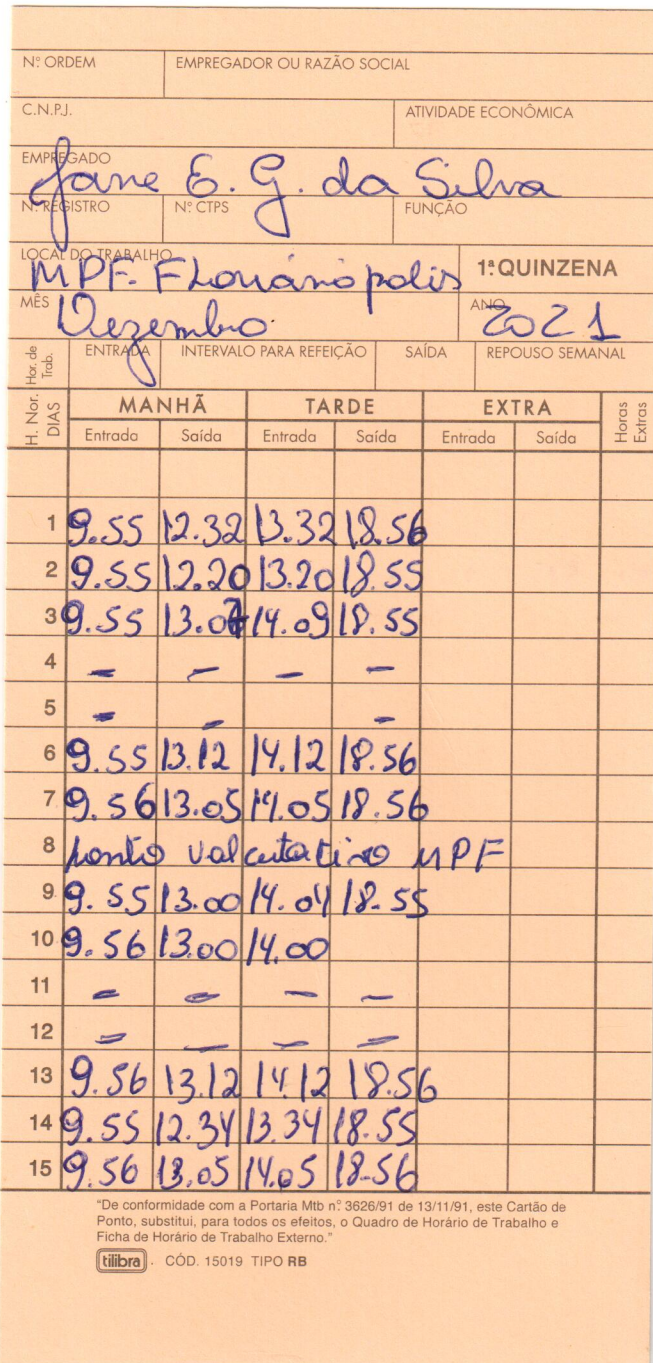 Nº ORDEM EMPREGADOR OU RAZÃO SOCIAL
C.N.P.J. ATIVIDADE ECONÔMICA
EMPREGADO
Jane E. G. da Silva
N. REGISTRO Nº CTPS FUNÇÃO
LOCAL DO TRABALHO
MPF. Florianópolis 1ª QUINZENA
MÊS ANO
Dezembro 2021
Hor. de Trab. ENTRADA INTERVALO PARA REFEIÇÃO SAÍDA REPOUSO SEMANAL
H. Nor. DIAS MANHÃ TARDE EXTRA Horas Extras
Entrada Saída Entrada Saída Entrada Saída
1 9.55 12.32 13.32 18.56
2 9.55 12.20 13.20 18.55
3 9.55 13.07 14.09 18.55
4 - - - -
5 - - -
6 9.55 13.12 14.12 18.56
7 9.56 13.05 14.05 18.56
8 ponto MPF
9 9.55 13.00 14.04 18.55
10 9.56 13.00 14.00
11 - - - -
12 - - - -
13 9.56 13.12 14.12 18.56
14 9.55 12.34 13.34 18.55
15 9.56 13.05 14.05 18.56
"De conformidade com a Portaria Mtb nº 3626/91 de 13/11/91, este Cartão de
Ponto, substitui, para todos os efeitos, o Quadro de Horário de Trabalho e
Ficha de Horário de Trabalho Externo."
tilibra. CÓD. 15019 TIPO RB